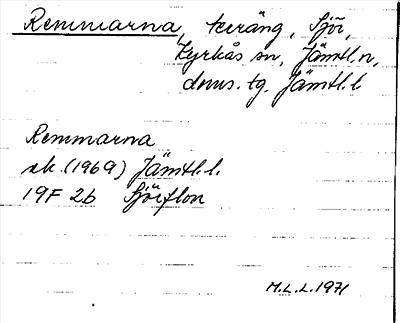 Remmarna, terräng, Sjör,
Kyrkås sn, Jämtl. n,
doms. tg. Jämtl. l.
Remmarna
ek. (1969) Jämtl. l.
19F 2b Sjörflon
M.L.L. 1971